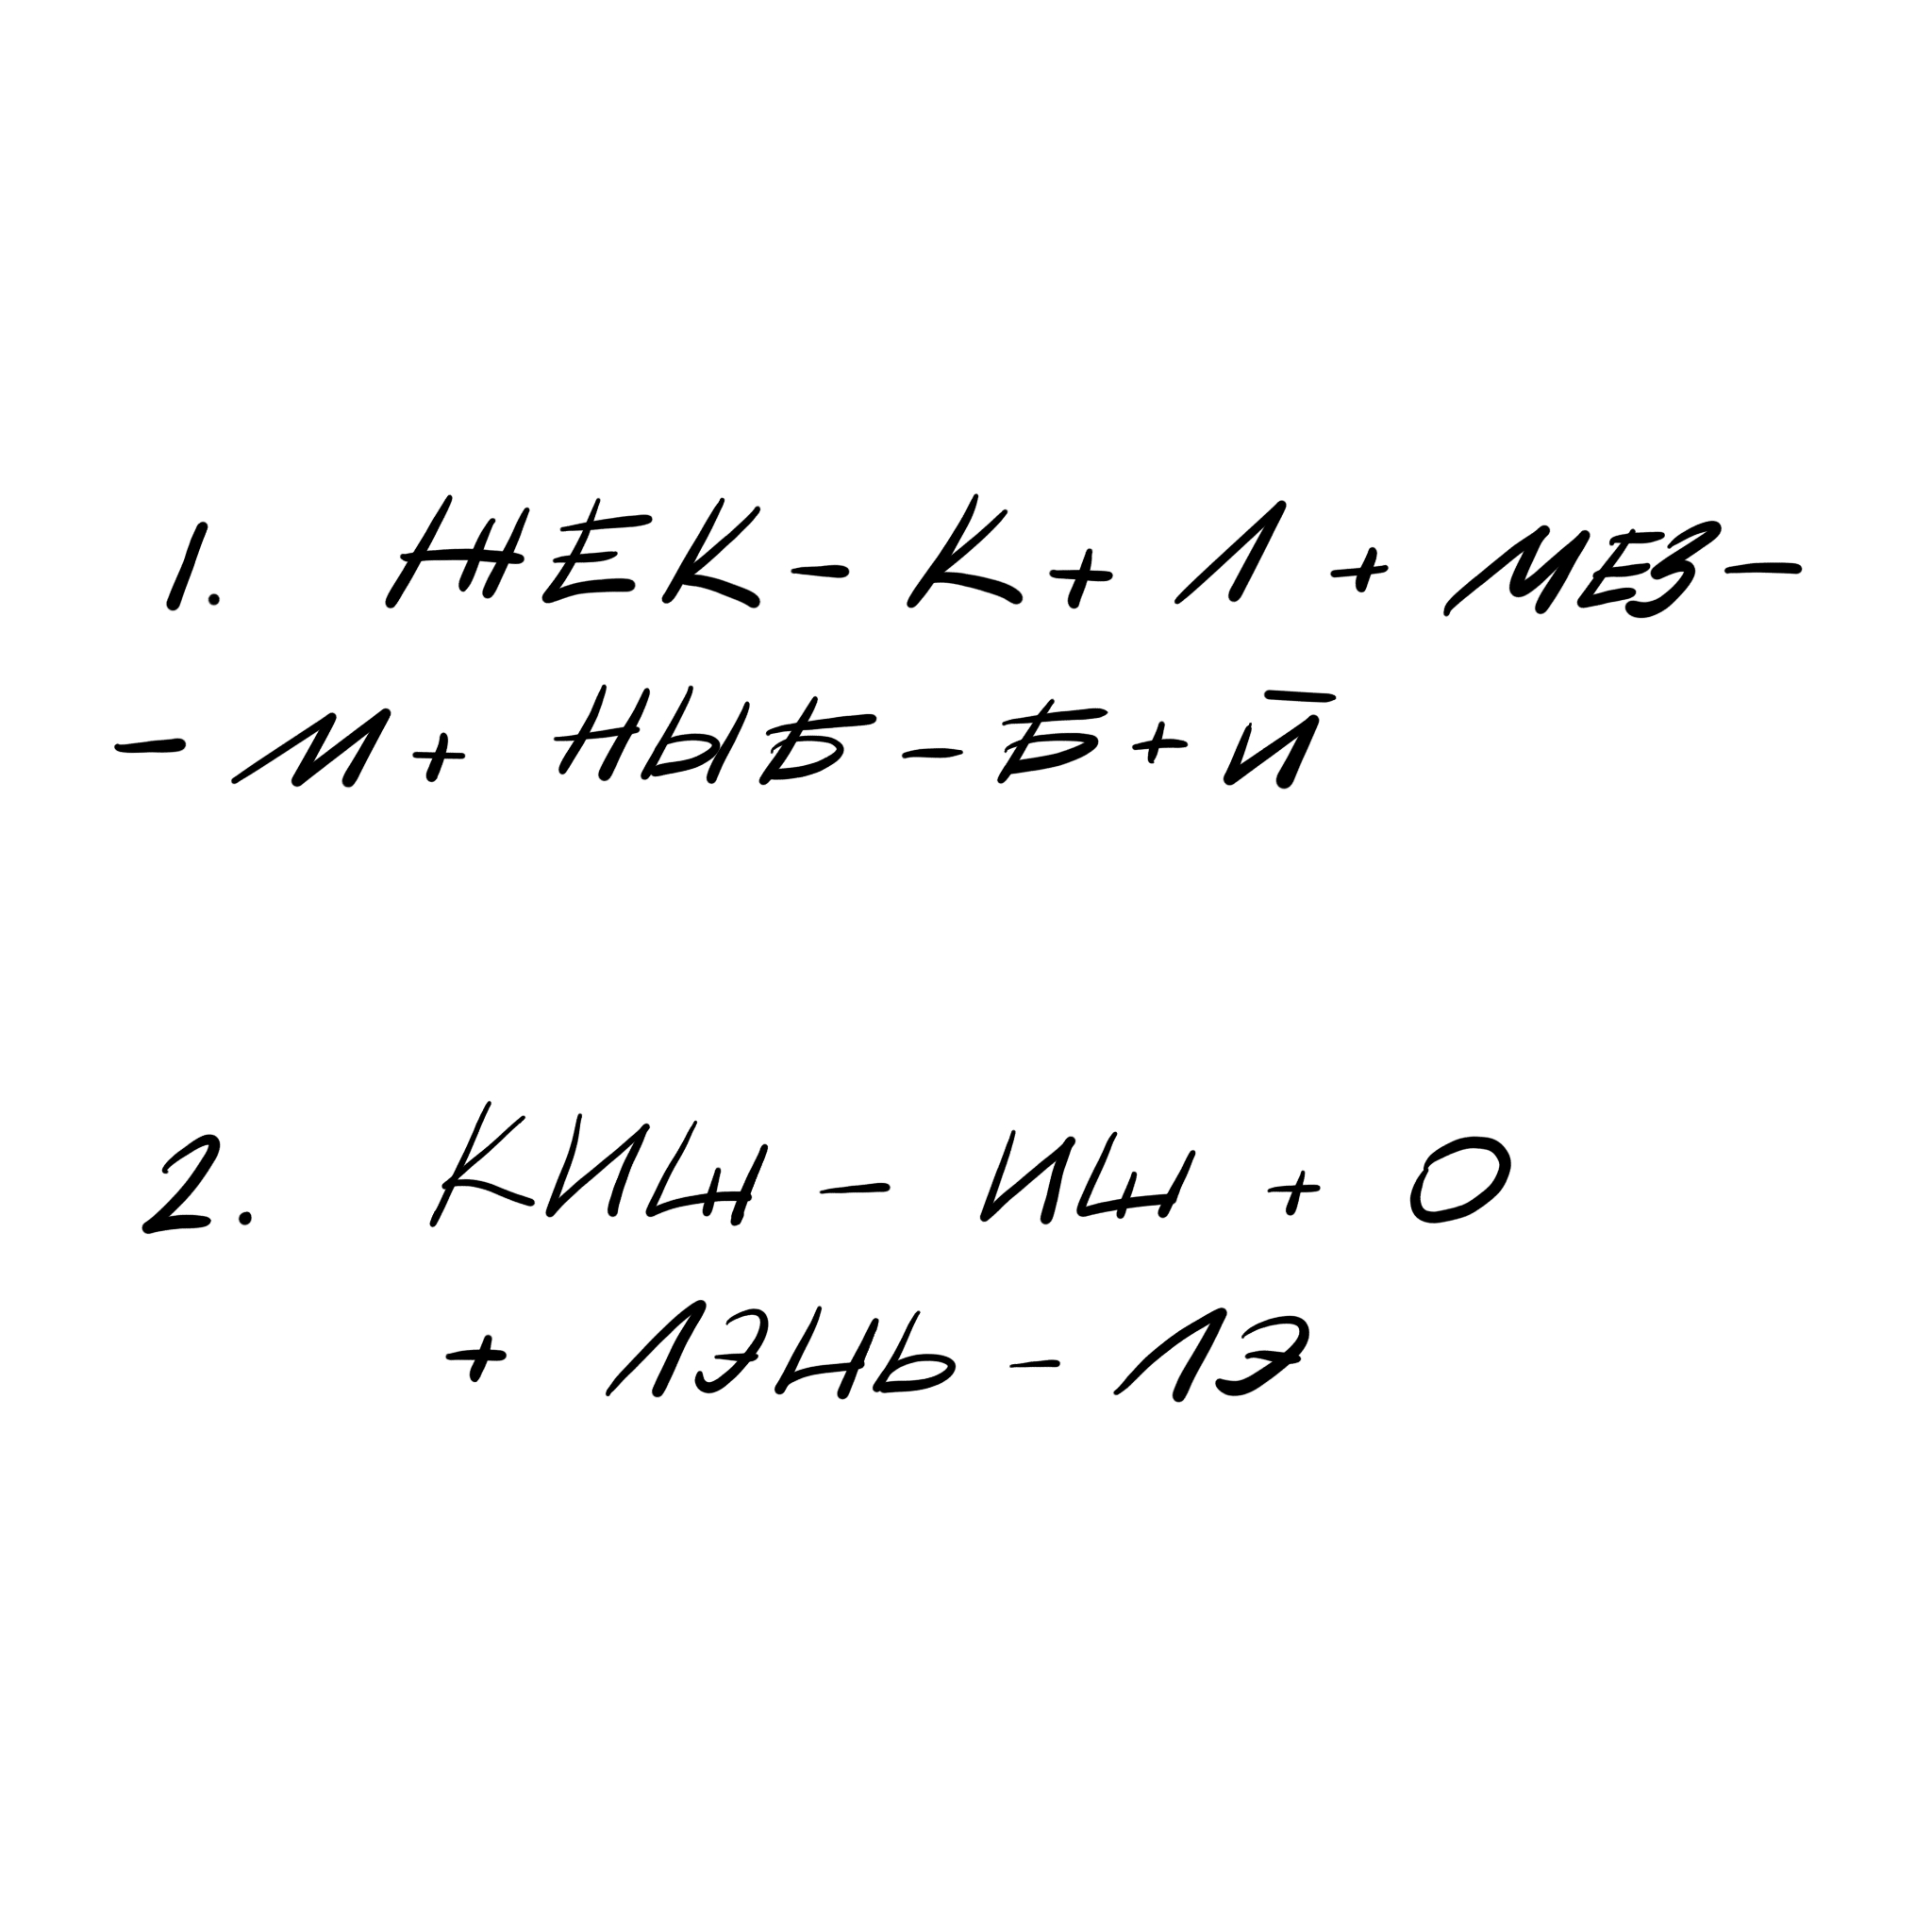 1. ЖЕК - К + Л + МЕЗ -
- М + НЫБ - Б + Й
2. КИШ - ИШ + О
+ ЛЭНЬ - ЛЭ